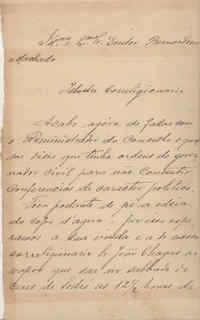 Illmo e Exmo Sr. Doutor Bernardino
Machado
Illustre Correligionario
Acabo agora de fallar com
o Administrador do Concelho e
me disse que tinha ordens do gover-
nador Civil para não consentir
Conferencias de caracter politico.
Fica portanto de pé a ideia
do Copo d'agua; por isso espe-
ramos a sua vinda e a do nosso
correligionario Dr João Chagas no
vapor que sae no sabado do
Caes de Sodré as 12½ horas da